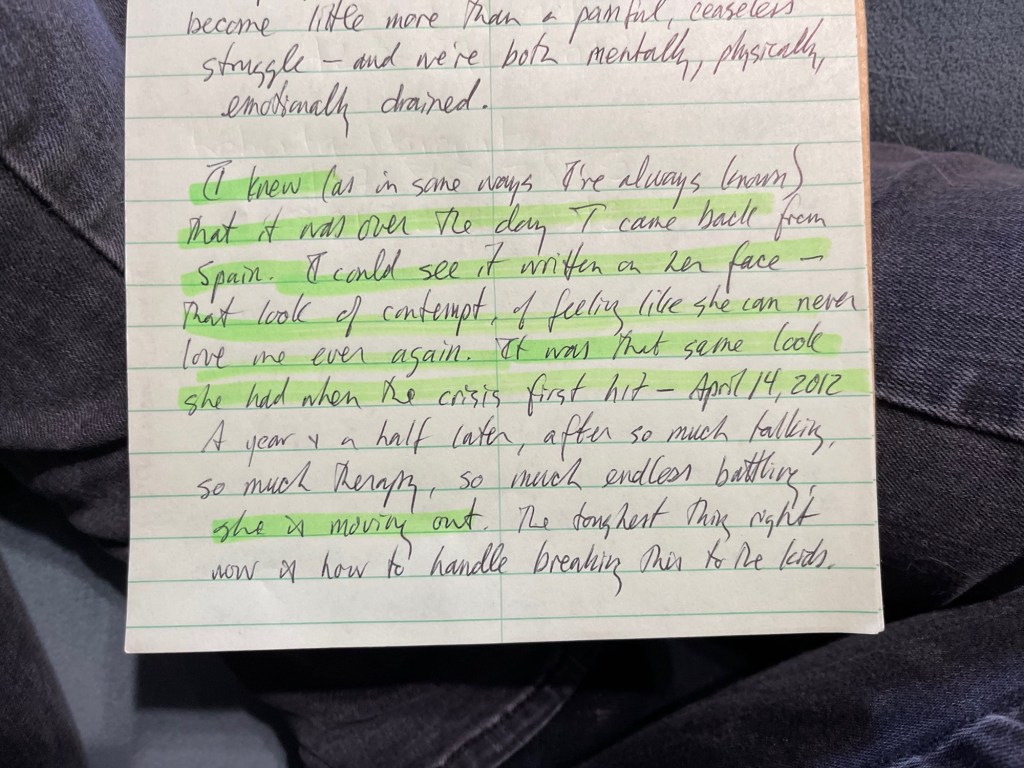 become little more than a painful, ceaseless
struggle – and we're both mentally, physically,
emotionally drained.
I knew (as in some ways I've always known)
that it was over the day I came back from
Spain. I could see it written on her face –
that look of contempt, of feeling like she can never
love me ever again. It was that same look
she had when the crisis first hit – April 14, 2012
A year & a half later, after so much talking,
so much therapy, so much endless battling,
she is moving out. The toughest thing right
now is how to handle breaking this to the kids.